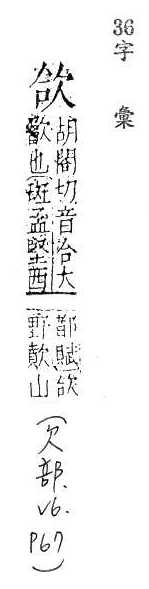 36字彙
欱
胡閤切音洽大
歠也班孟堅西
都賦欱
野歕山
(欠部. V6. P67)